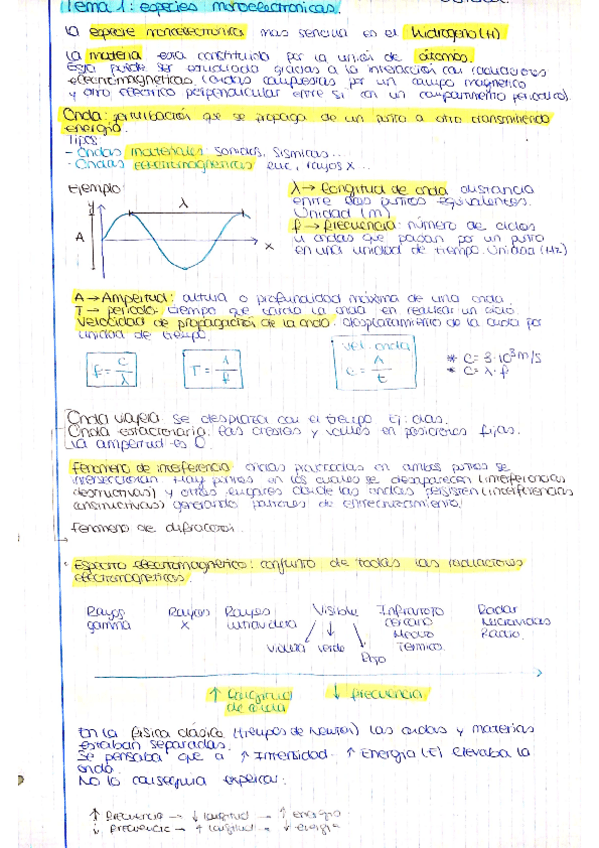 Tema 1: especies monoelectronicas.
La especie monoelectronica mas sencilla es el hidrogeno (H)
La materia esta constituida por la unión de átomos.
Esta puede ser estudiada gracias a la interacción con radiaciones
electromagnéticas (ondas compuestas por un campo magnetico
y otro eléctrico perpendicular entre si con un comportamiento periodico).
Onda: perturbación que se propaga de un punto a otro transmitiendo
energía.
Tipos:
- Ondas materiales: sonidos, sismicas...
- Ondas electromagneticas: luz, rayos x ...
Ejemplo:
λ → longitud de onda distancia
entre dos puntos equivalentes.
Unidad (m)
f → frecuencia: número de ciclos
u ondas que pasan por un punto
en una unidad de tiempo. Unidad (Hz)
y
λ
A
x
A → Amplitud: altura o profundidad máxima de una onda.
T → periodo: tiempo que tarda la onda en realizar un ciclo.
Velocidad de propagación de la onda: desplazamiento de la onda por
unidad de tiempo.
f = c/λ
T = 1/f
vel. onda
c = λ/t
* C = 3·10³ m/s
* C = λ·f
Onda viajera: se desplaza con el tiempo. Ej: olas.
Onda estacionaria: las crestas y valles en posiciones fijas.
La amplitud es 0.
Fenomeno de interferencia: ondas producidas en ambos puntos se
interseccionan. Hay puntos en los cuales se desaparecen (interferencias
destructivas) y otros lugares donde las ondas persisten (interferencias
constructivas) generando patrones de entrecruzamiento.
Fenomeno de difracción.
Espectro electromagnético: conjunto de todas las radiaciones
electromagneticas.
Rayos gamma
Rayos X
Rayos ultravioleta
Visible
violeta verde Rojo
Infrarrojo
cercano
Medio
Termico.
Radar
Microondas
Radio.
↑ longitud de onda
↓ frecuencia
En la física clásica (tiempos de Newton) las ondas y materias
estaban separadas.
Se pensaba que a ↑ Intensidad ↑ Energía (E) llevaba la
onda.
No lo conseguia explicar:
↑ frecuencia → ↓ longitud → ↑ energía
↓ frecuencia → ↑ longitud → ↓ energía